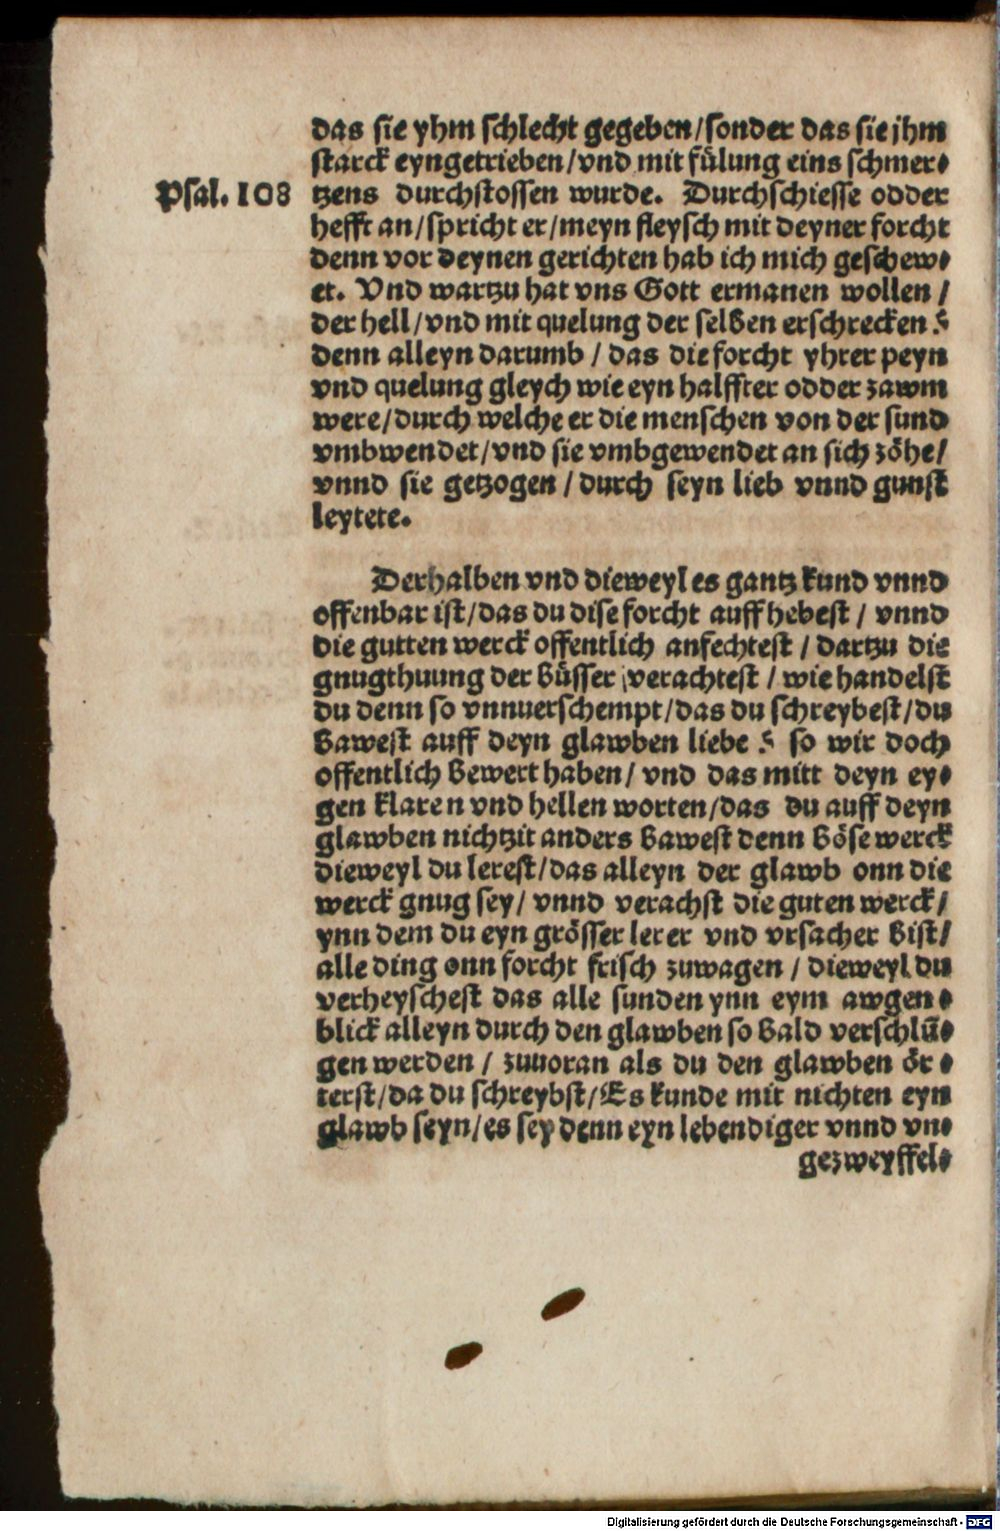 das sie yhm schlecht gegeben/sonder das sie jhm
starck eyngetrieben/vnd mit fülung eins schmer⸗
Psal. 108 tzens durchstossen wurde. Durchschiesse odder
hefft an/spricht er/meyn fleysch mit deyner forcht
denn vor deynen gerichten hab ich mich geschew⸗
et. Vnd wartzu hat vns Gott ermanen wollen /
der hell/vnd mit quelung der selben erschrecken?
denn alleyn darumb / das die forcht yhrer peyn
vnd quelung gleych wie eyn halffter odder zawm
were/durch welche er die menschen von der sund
vmbwendet/vnd sie vmbgewendet an sich zöhe/
vnnd sie getzogen / durch seyn lieb vnnd gunst
leytete.
Derhalben vnd dieweyl es gantz kund vnnd
offenbar ist/das du dise forcht auffhebest / vnnd
die gutten werck offentlich anfechtest / dartzu die
gnugthuung der büsser verachtest / wie handelst
du denn so vnnuerschempt/das du schreybest/du
bawest auff deyn glawben liebe? so wir doch
offentlich bewert haben/ vnd das mitt deyn ey⸗
gen klaren vnd hellen worten/das du auff deyn
glawben nichtzit anders bawest denn böse werck
dieweyl du lerest/das alleyn der glawb onn die
werck gnug sey/ vnnd verachst die guten werck/
ynn dem du eyn grösser lerer vnd vrsacher bist/
alle ding onn forcht frisch zuwagen / dieweyl du
verheyschest das alle sunden ynn eym awgen⸗
blick alleyn durch den glawben so bald verschlü⸗
gen werden / zuuoran als du den glawben ör⸗
terst/da du schreybst/Es kunde mit nichten eyn
glawb seyn/es sey denn eyn lebendiger vnnd vn⸗
gezweyffel⸗
Digitalisierung gefördert durch die Deutsche Forschungsgemeinschaft - DFG